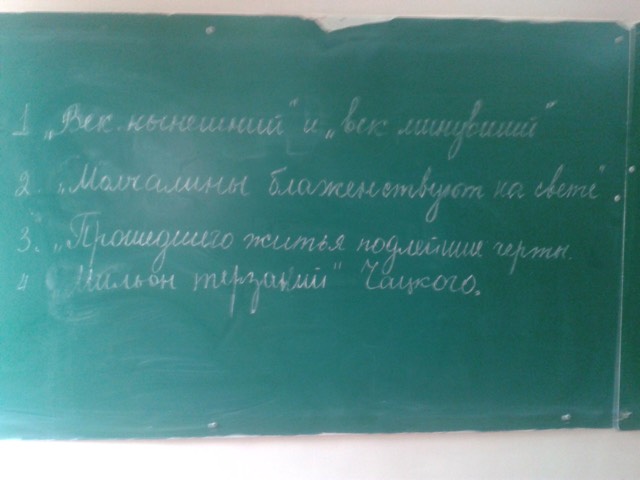 1 „Век нынешний" и „век минувший"
2. „Молчалины блаженствуют на свете"
3. „Прошедшего житья подлейшие черты.
4 Мильон терзаний" Чацкого.